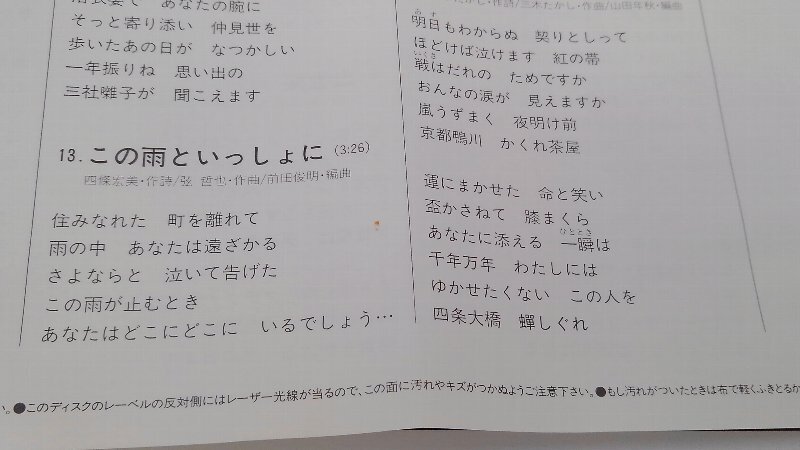 あなたの腕に
そっと寄り添い　仲見世を
歩いたあの日が　なつかしい
一年振りね　思い出の
三社囃子が　聞こえます
13.この雨といっしょに (3:26)
四條宏美・作詩/弦　哲也・作曲/前田俊明・編曲
住みなれた　町を離れて
雨の中　あなたは遠ざかる
さよならと　泣いて告げた
この雨が止むとき
あなたはどこにどこに　いるでしょう…
たかし・作詩/三木たかし・作曲/山田年秋・編曲
明日もわからぬ　契りとしって
ほどけば泣けます　紅の帯
戦はだれの　ためですか
おんなの涙が　見えますか
嵐うずまく　夜明け前
京都鴨川　かくれ茶屋
運にまかせた　命と笑い
盃かさねて　膝まくら
あなたに添える　一瞬は
千年万年　わたしには
ゆかせたくない　この人を
四条大橋　蟬しぐれ
い。●このディスクのレーベルの反対側にはレーザー光線が当るので、この面に汚れやキズがつかぬようご注意下さい。●もし汚れがついたときは布で軽くふきとるか